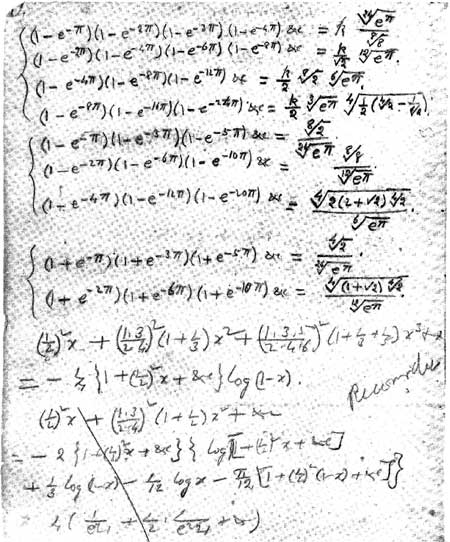 (1-e^{-π})(1-e^{-2π})(1-e^{-3π})(1-e^{-4π}) &c = k \frac{\sqrt[24]{e^π}}{\sqrt[8]{8}}
(1-e^{-2π})(1-e^{-4π})(1-e^{-6π})(1-e^{-8π}) &c = \frac{k}{\sqrt{2}} \sqrt[12]{e^π}.
(1-e^{-4π})(1-e^{-8π})(1-e^{-12π}) &c = \frac{k}{2} \sqrt[8]{2} \sqrt[6]{e^π}.
(1-e^{-8π})(1-e^{-16π})(1-e^{-24π}) &c = \frac{k}{2} \sqrt[3]{e^π}
(1-e^{-π})(1-e^{-3π})(1-e^{-5π}) &c = \frac{\sqrt[8]{2}}{\sqrt[24]{e^π}}.
(1-e^{-2π})(1-e^{-6π})(1-e^{-10π}) &c = \frac{\sqrt[8]{8}}{\sqrt[12]{e^π}}.
(1-e^{-4π})(1-e^{-12π})(1-e^{-20π}) &c = \frac{\sqrt[4]{2(2+√2)\sqrt[4]{2}}}{\sqrt[6]{e^π}}.
(1+e^{-π})(1+e^{-3π})(1+e^{-5π}) &c = \frac{\sqrt[4]{2}}{\sqrt[24]{e^π}}.
(1+e^{-2π})(1+e^{-6π})(1+e^{-10π}) &c = \frac{\sqrt[4]{(1+√2)\sqrt[4]{2}}}{\sqrt[12]{e^π}}.
(\frac{1}{2})^2 x + (\frac{1.3}{2.4})^2 (1+\frac{1}{3}) x^2 + (\frac{1.3.5}{2.4.6})^2 (1+\frac{1}{3}+\frac{1}{5}) x^3 + &c
= -\frac{1}{4} {1+(\frac{1}{2})^2 x + &c} log(1-x).
(\frac{1}{2})^2 x + (\frac{1.3}{2.4})^2 (1+\frac{1}{2}) x^2 + &c
= -2 {1+(\frac{1}{2})^2 x + &c} { log [1+(\frac{1}{2})^2 x + &c]
+ \frac{1}{3} log(1-x) - \frac{1}{12} log x - \frac{π}{12} [1+(\frac{1}{2})^2 (1-x) + &c] }